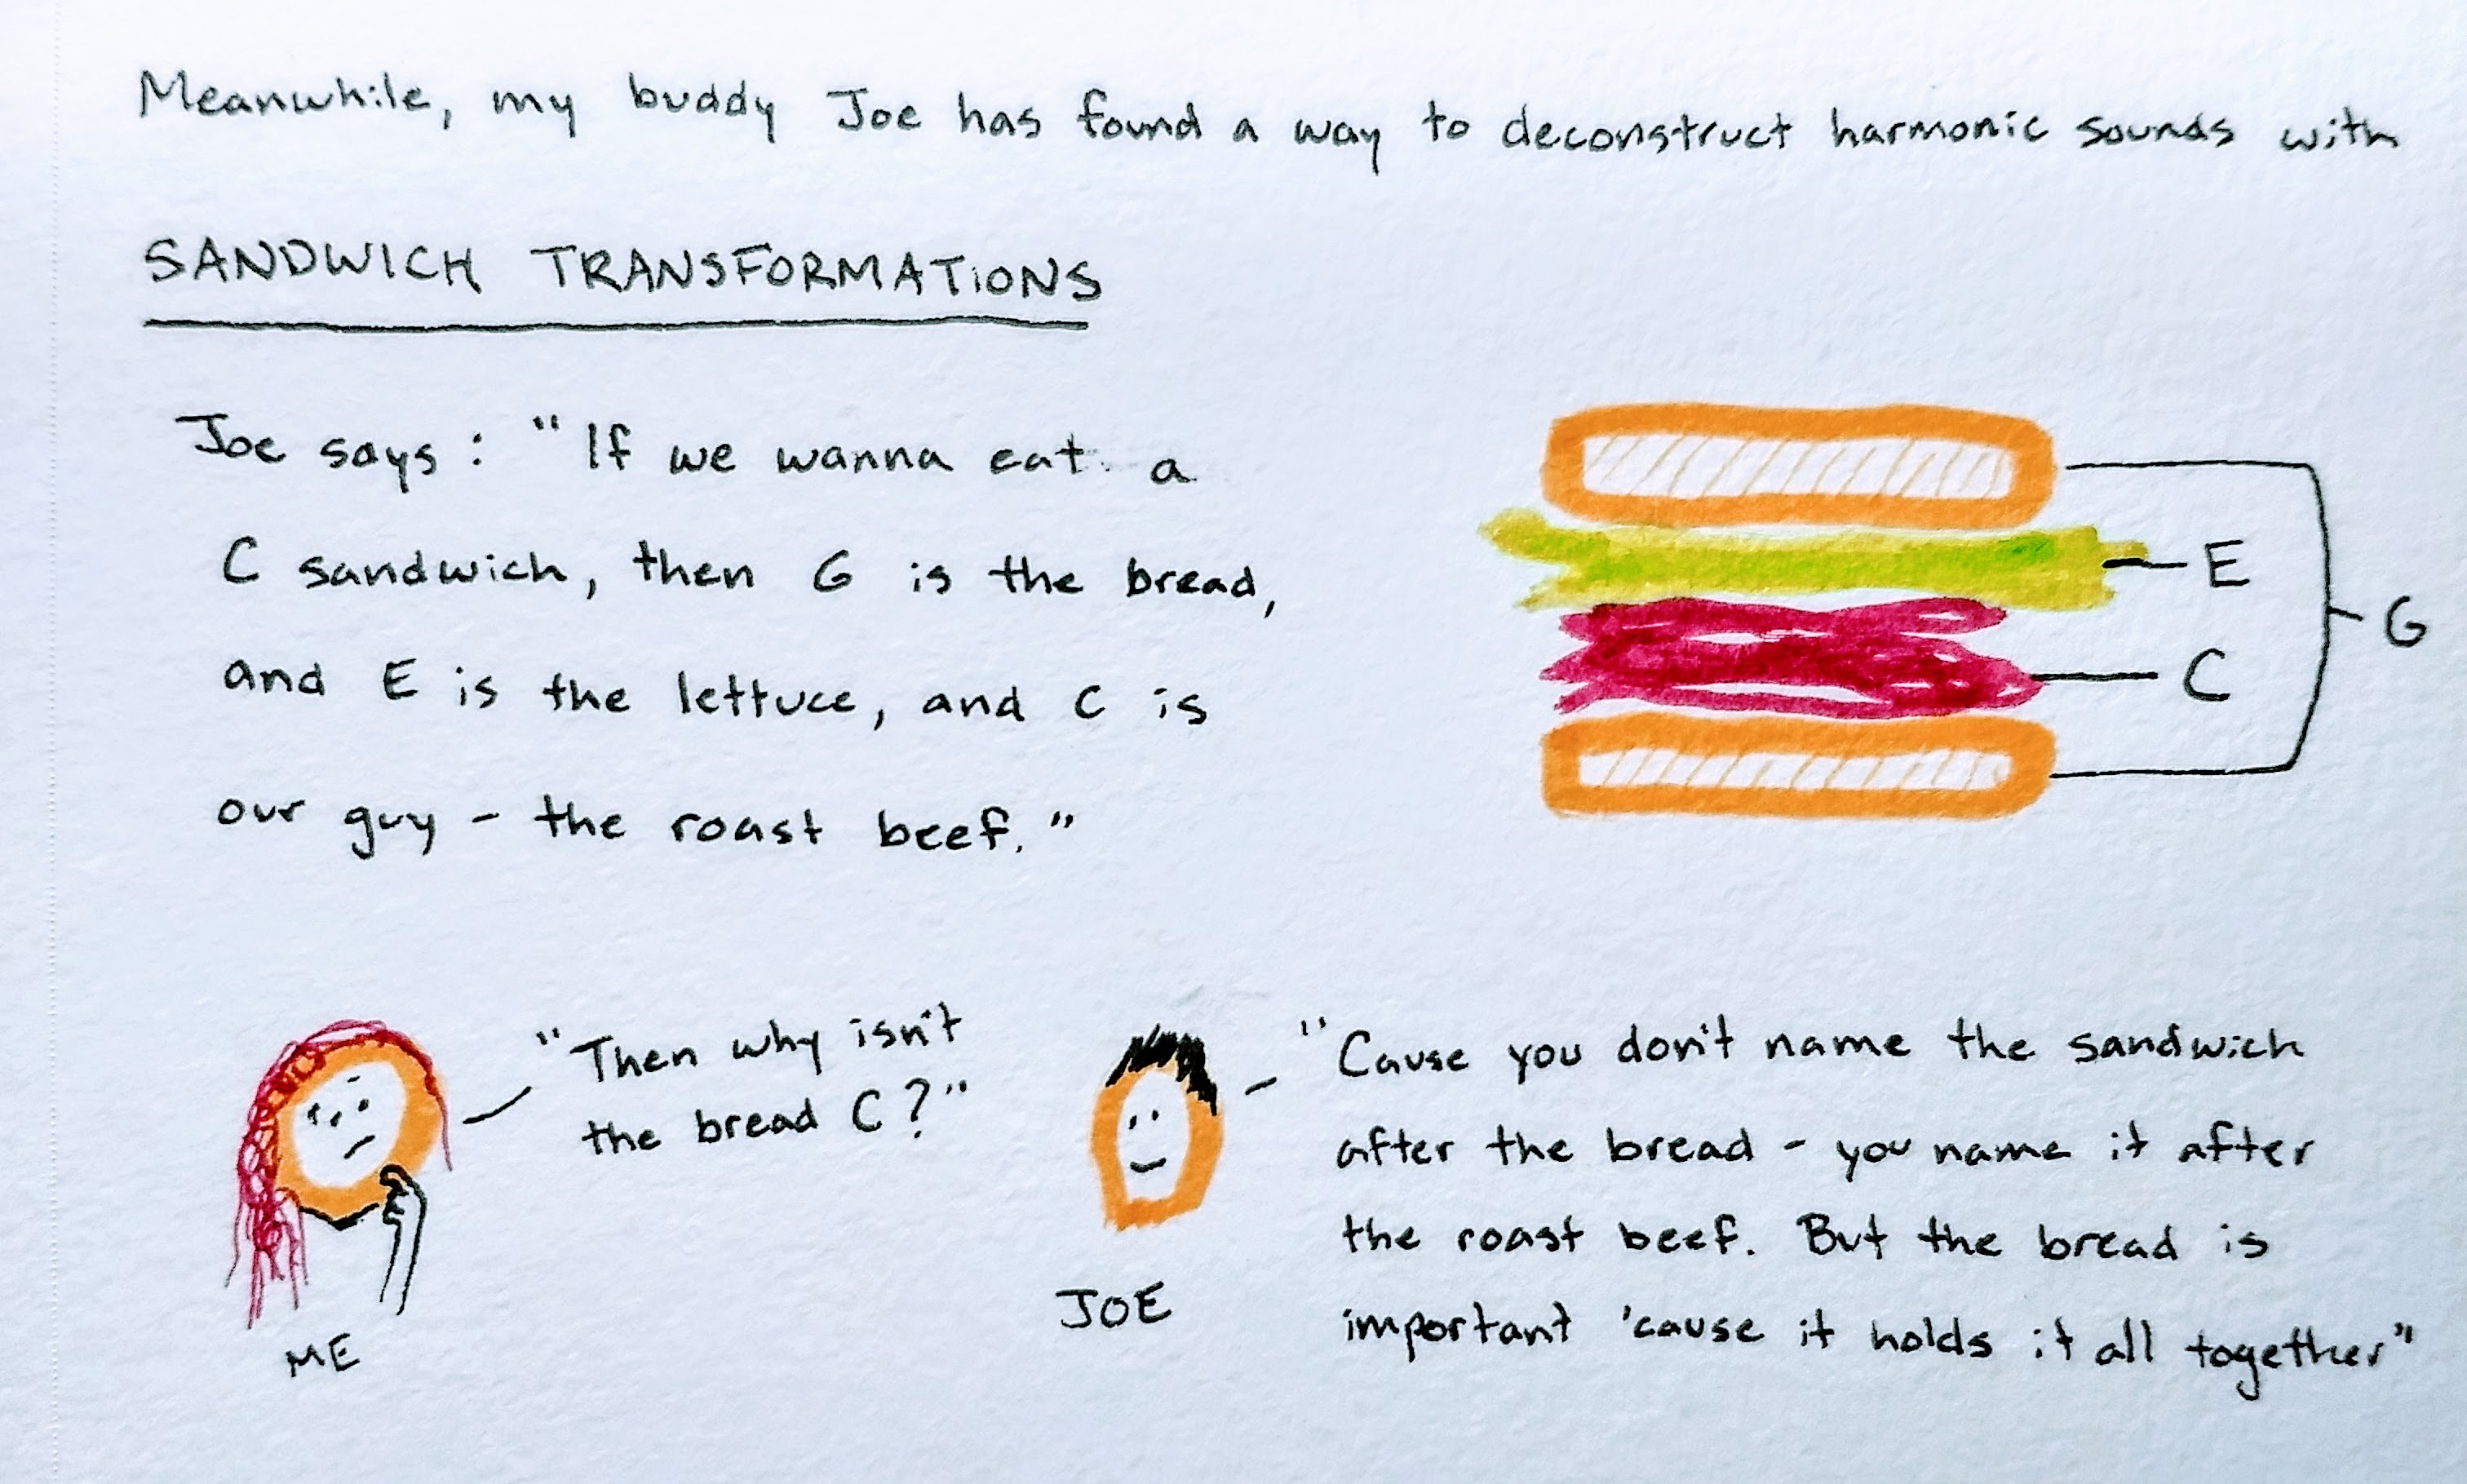 Meanwhile, my buddy Joe has found a way to deconstruct harmonic sounds with
SANDWICH TRANSFORMATIONS
Joe says: "If we wanna eat a
C sandwich, then G is the bread,
and E is the lettuce, and C is
our guy - the roast beef."
E
G
C
"Then why isn't
the bread C?"
ME
JOE
"Cause you don't name the sandwich
after the bread - you name it after
the roast beef. But the bread is
important 'cause it holds it all together"